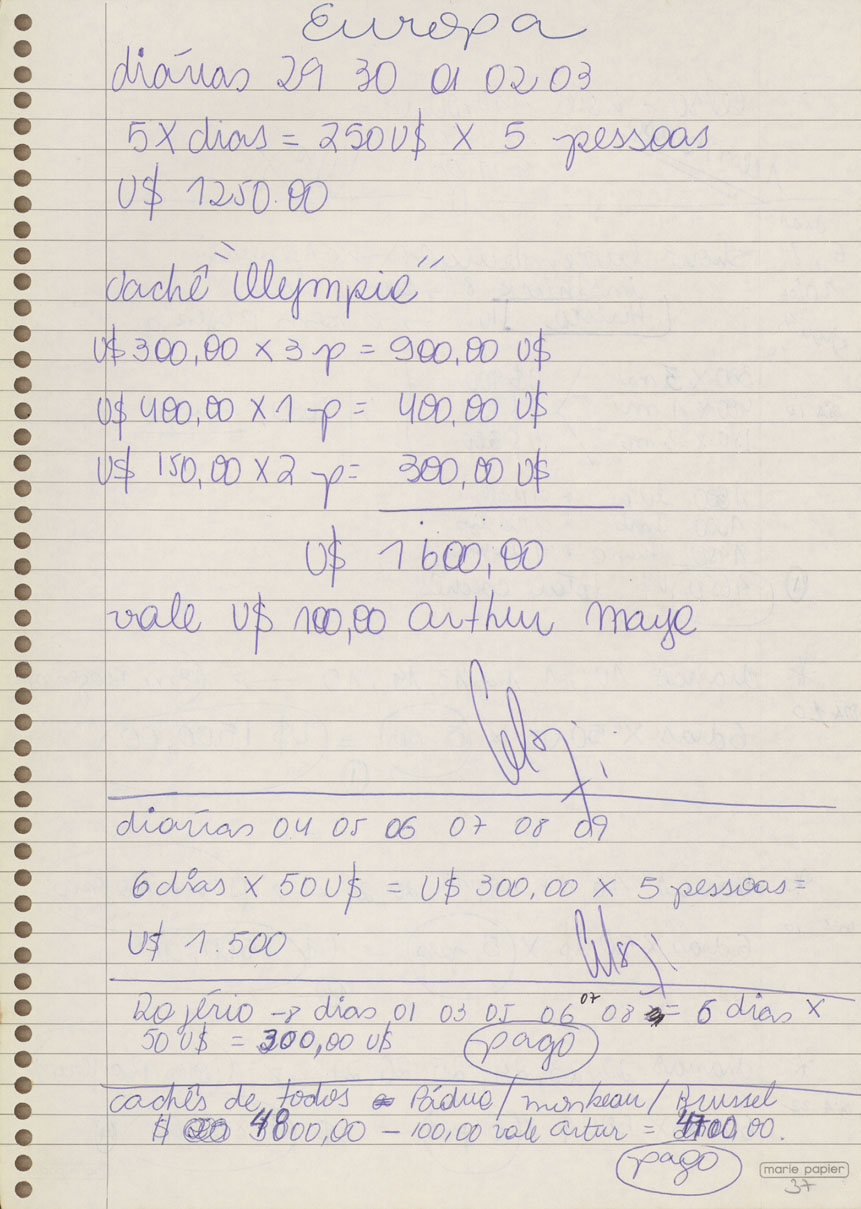 Europa
diárias 29 30 01 02 03
5 X dias = 250 U$ X 5 pessoas
U$ 1250.00
cachê "Olympia"
U$ 300,00 X 3 p = 900,00 U$
U$ 400,00 X 1 p = 400,00 U$
U$ 150,00 X 2 p = 300,00 U$
U$ 1600,00
vale U$ 100,00 Arthur Maya
diárias 04 05 06 07 08 09
6 dias X 50 U$ = U$ 300,00 X 5 pessoas =
U$ 1.500
Rogério - 8 dias 01 03 05 06 07 08 = 6 dias X
50 U$ = 300,00 U$ pago
cachês de todos Pádua / / Brussel
$ 4800,00 - 100,00 vale Artur = 4700,00.
pago
marie papier
37